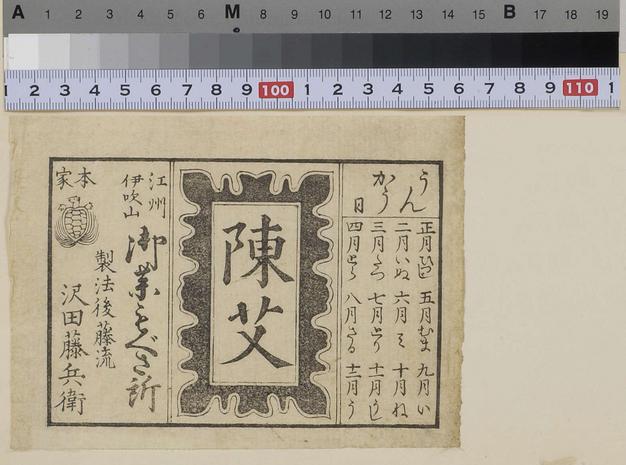 A 1 2 3 4 5 6 M 8 9 10 11 12 13 14 15 B 17 18 19
1 2 3 4 5 6 7 8 9 100 1 2 3 4 5 6 7 8 9 110 1
うん
かう
日
正月ひつじ 五月むま 九月い
二月いぬ 六月ミ 十月ね
三月たつ 七月とり 十一月うし
四月とら 八月さる 十二月う
陳艾
江州
伊吹山
御薬もぐさ所
製法後藤流
本家
沢田藤兵衛